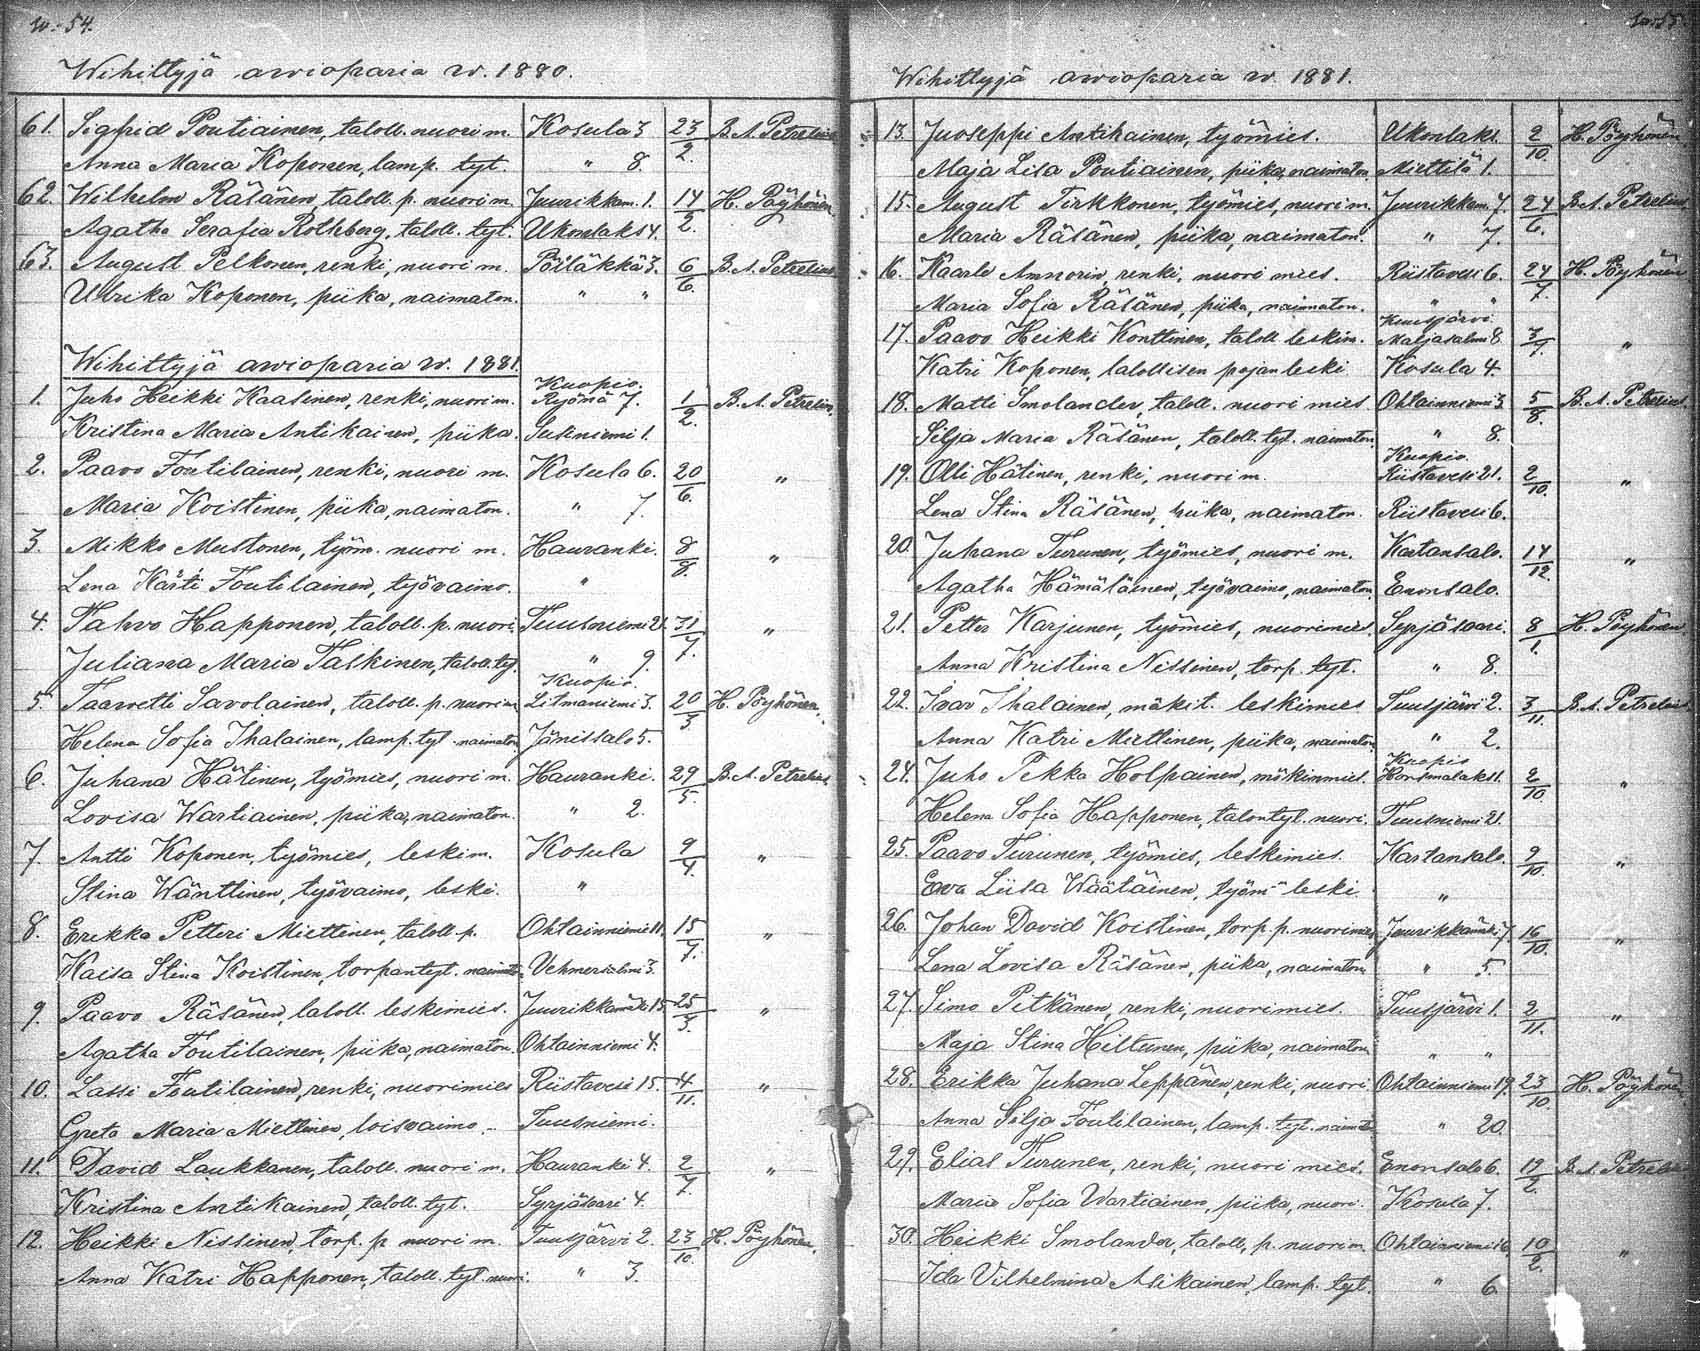 w. 54.
Wihittyjä awioparia w. 1880.
61. Sigfrid Poutiainen, taloll. nuori m. Kosula 3 23/2. B. A. Petrelius
Anna Maria Koponen, lamp. tyt. " 8.
62. Wilhelm Räsänen, taloll. p. nuori m. Juurikkam. 1. 14/2. H. Pöyhönen
Agatha Serafia Rothberg, taloll. tyt. Ukonlaks 4.
63. August Pelkonen, renki, nuori m. Pölläkkä 3. 6/6. B. A. Petrelius
Ulrika Koponen, piika, naimaton. " "
Wihittyjä awioparia w. 1881.
Kuopio.
1. Juho Heikki Kaasinen, renki, nuori m. Ryönä 7. 1/2. B. A. Petrelius
Kristina Maria Antikainen, piika. Susiniemi 1.
2. Paavo Foutilainen, renki, nuori m. Kosula 6. 20/6. "
Maria Koistinen, piika, naimaton. " 7.
3. Mikko Mustonen, työm. nuori m. Hauranki. 8/8. "
Lena Kaisti Foutilainen, työvaimo. "
4. Tahvo Happonen, taloll. p. nuori. Tuusniemi 21. 31/7. "
Juliana Maria Taskinen, taloll. tyt. " 9.
Kuopio.
5. Taavetti Savolainen, taloll. p. nuori m. Litmaniemi 3. 20/3. H. Pöyhönen.
Helena Sofia Ihalainen, lamp. tyt. naimaton Jänissalo 5.
6. Juhana Hätinen, työmies, nuori m. Hauranki. 29/5. B. A. Petrelius
Lovisa Wartiainen, piika, naimaton. " 2.
7. Antti Koponen, työmies, leskim. Kosula 9/4. "
Stina Wänttinen, työvaimo, leski. "
8. Erikka Petteri Miettinen, taloll. p. Ohtainniemi 11. 15/7. "
Kaisa Stina Koistinen, torpan tyt. naimaton Vehmersalmi 3.
9. Paavo Räsänen, taloll. leskimies. Juurikkamäki 15. 25/3. "
Agatha Foutilainen, piika, naimaton. Ohtainniemi 4.
10. Lassi Foutilainen, renki, nuorimies Riistavesi 15. 4/11. "
Greta Maria Miettinen, loisvaimo. Tuusniemi.
11. David Laukkanen, taloll. nuori m. Hauranki 4. 2/7. "
Kristina Antikainen, taloll. tyt. Syrjäsaari 4.
12. Heikki Nissinen, torp. p. nuori m. Tuusjärvi 2. 23/10. H. Pöyhönen.
Anna Katri Happonen, taloll. tyt. nuori. " 3.
w. 55.
Wihittyjä awioparia w. 1881.
13. Juoseppi Antikainen, työmies. Ukonlaks. 2/10. H. Pöyhönen
Maja Lisa Poutiainen, piika, naimaton. Miettilä 1.
15. August Tirkkonen, työmies, nuori m. Juurikkam. 7. 24/6. B. A. Petrelius
Maria Räsänen, piika, naimaton. " 7.
16. Kaarlo Amnorin, renki, nuori mies. Riistavesi 6. 24/7. H. Pöyhönen
Maria Sofia Räsänen, piika, naimaton. " "
Kuusjärvi
17. Paavo Heikki Konttinen, taloll. leskim. Maljasalmi 8. 3/7. "
Katri Koponen, talollisen pojan leski Kosula 4.
18. Matti Smolander, taloll. nuori mies. Ohtainniemi 3. 5/8. B. A. Petrelius.
Silja Maria Räsänen, taloll. tyt. naimaton. " 8.
Kuopio.
19. Olli Hätinen, renki, nuori m. Riistavesi 21. 2/10. "
Lena Stina Räsänen, piika, naimaton. Riistavesi 6.
20. Juhana Turunen, työmies, nuori m. Kartansalo. 14/12. "
Agatha Hämäläinen, työvaimo, naimaton. Enonsalo.
21. Petter Karjunen, työmies, nuorimies. Syrjäsaari. 8/1. H. Pöyhönen
Anna Kristina Nissinen, torp. tyt. " 8.
22. Ivar Ihalainen, mäkit. leskimies Tuusjärvi 2. 3/11. B. A. Petrelius
Anna Katri Miettinen, piika, naimaton. " 2.
Kuopio
24. Juho Pekka Holpainen, mökinmies. Kortmalaks 1. 2/10. "
Helena Sofia Happonen, talon tyt. nuori. Tuusniemi 21.
25. Paavo Turunen, työmies, leskimies. Kartansalo. 9/10. "
Eeva Liisa Wäätäinen, työm-" leski. "
26. Johan David Koistinen, torp. p. nuorimies Juurikkamäki 7. 16/10. "
Lena Lovisa Räsänen, piika, naimaton. " 5.
27. Simo Pitkänen, renki, nuorimies. Tuusjärvi 1. 2/11. "
Maja Stina Hiltunen, piika, naimaton. " "
28. Erikka Juhana Leppänen, renki, nuori. Ohtainniemi 19. 23/10. H. Pöyhönen
Anna Silja Foutilainen, lamp. tyt. naimaton " 20.
29. Elias Turunen, renki, nuori mies. Enonsalo 6. 19/2. B. A. Petrelius
Maria Sofia Wartiainen, piika, nuori. Kosula 7.
30. Heikki Smolander, taloll. p. nuori m. Ohtainniemi 16. 10/2. "
Ida Vilhelmina Asikainen, lamp. tyt. " 6.